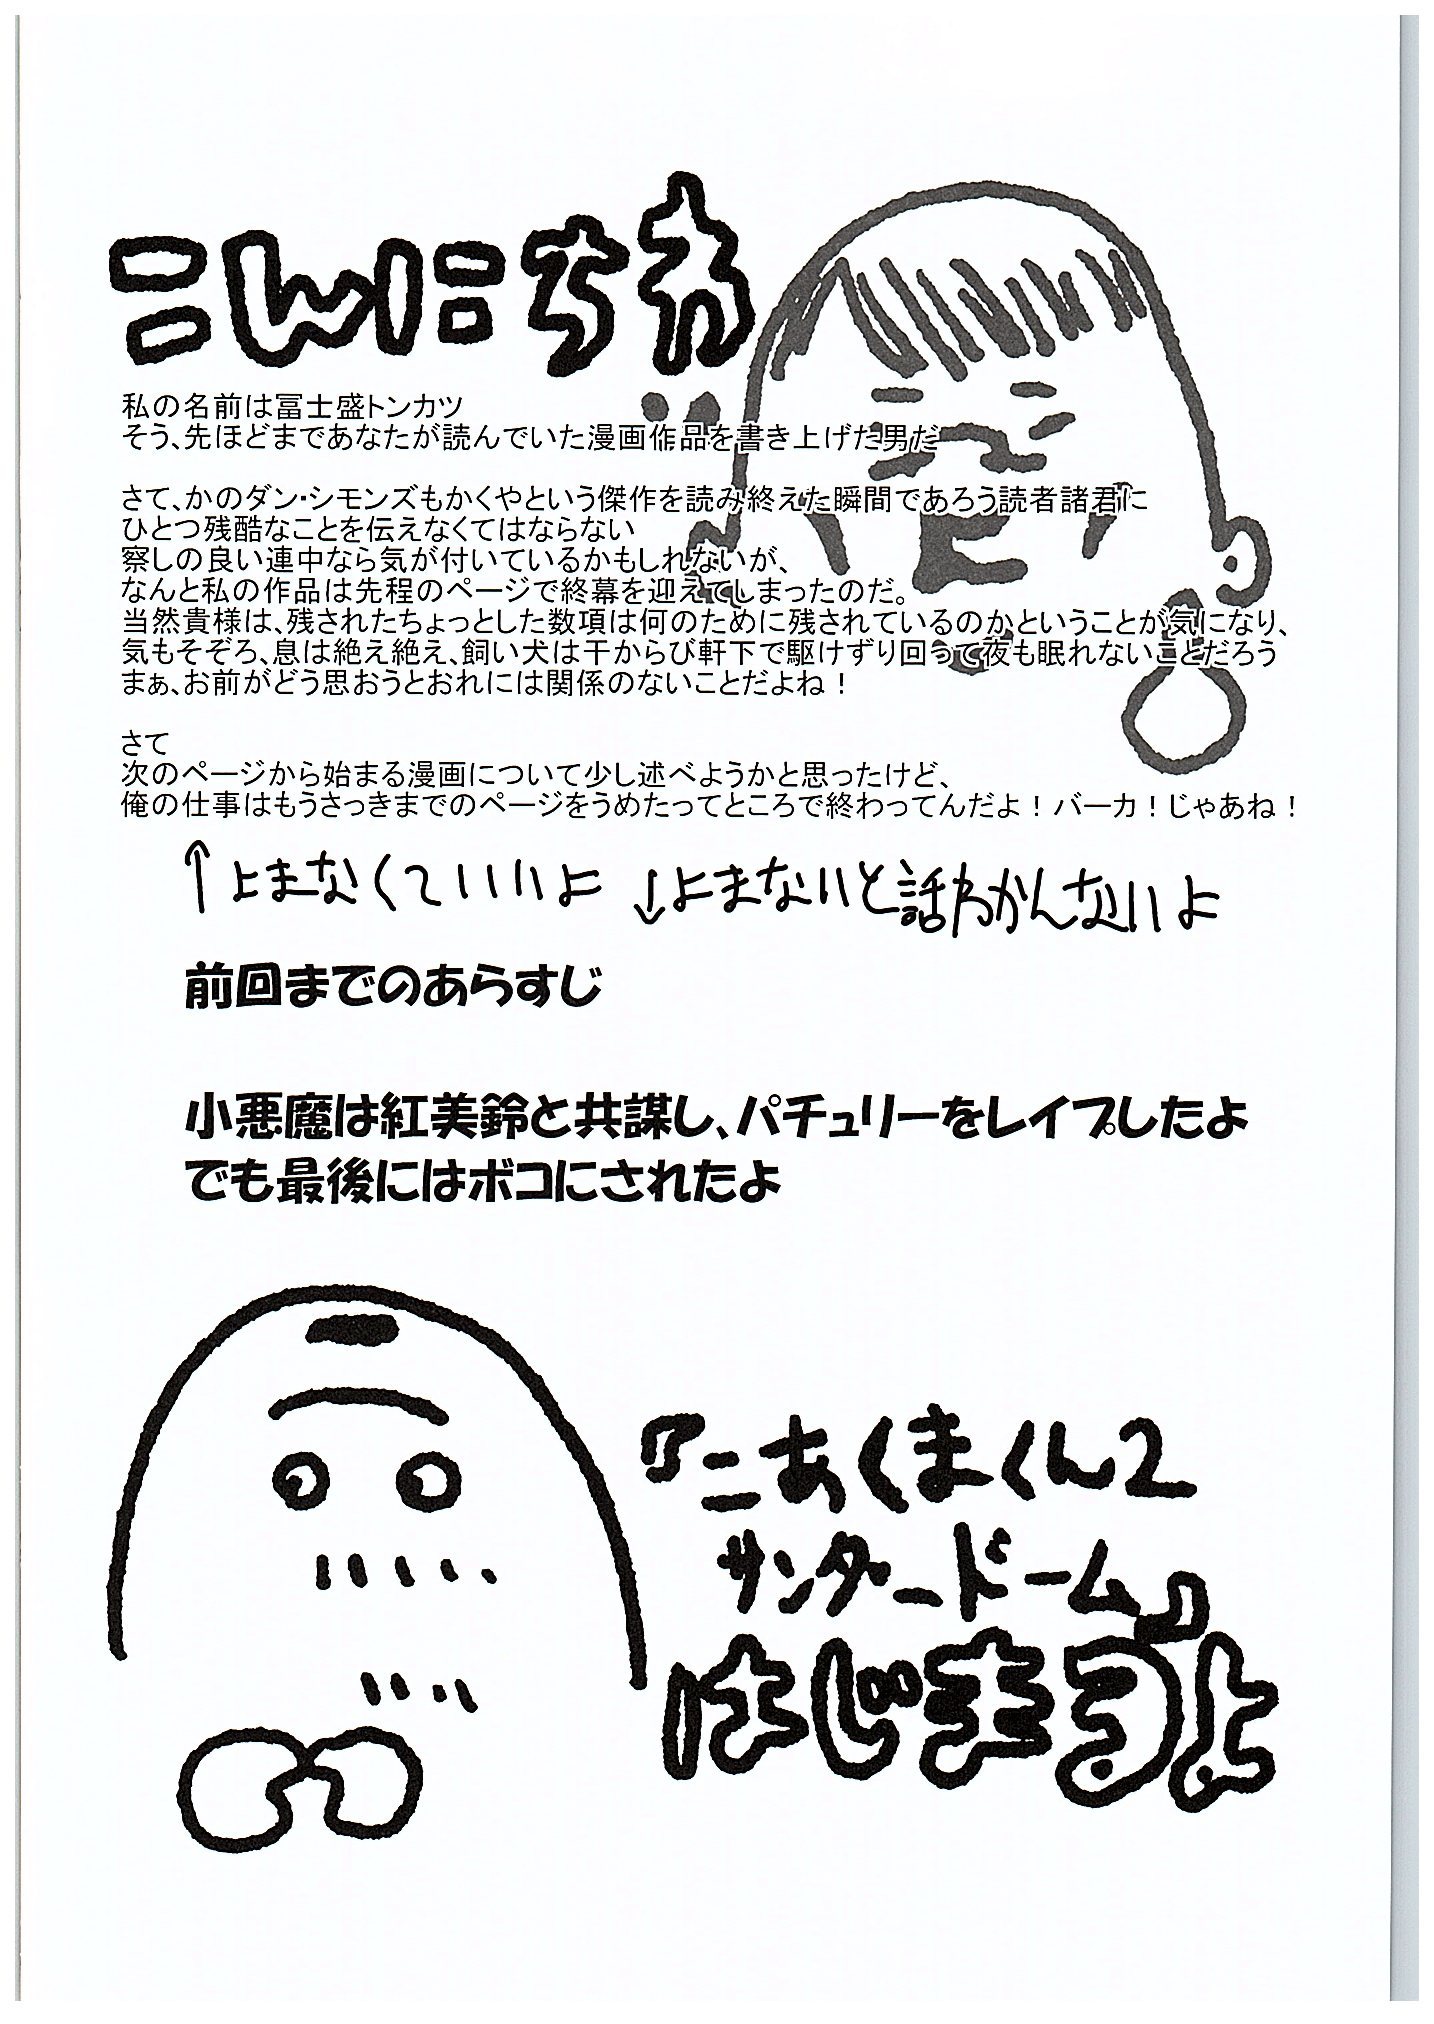 こんにちわ
私の名前は冨士盛トンカツ
そう、先ほどまであなたが読んでいた漫画作品を書き上げた男だ
さて、かのダン・シモンズもかくやという傑作を読み終えた瞬間であろう読者諸君に
ひとつ残酷なことを伝えなくてはならない
察しの良い連中なら気が付いているかもしれないが、
なんと私の作品は先程のページで終幕を迎えてしまったのだ。
当然貴様は、残されたちょっとした数項は何のために残されているのかということが気になり、
気もそぞろ、息は絶え絶え、飼い犬は干からび軒下で駆けずり回って夜も眠れないことだろう
まぁ、お前がどう思おうとおれには関係のないことだよね！
さて
次のページから始まる漫画について少し述べようかと思ったけど、
俺の仕事はもうさっきまでのページをうめたってところで終わってんだよ！バーカ！じゃあね！
↑よまなくていいよ ↓よまないと話わかんないよ
前回までのあらすじ
小悪魔は紅美鈴と共謀し、パチュリーをレイプしたよ
でも最後にはボコにされたよ
『こあくまくん2
サンダードーム』
はじまるよ